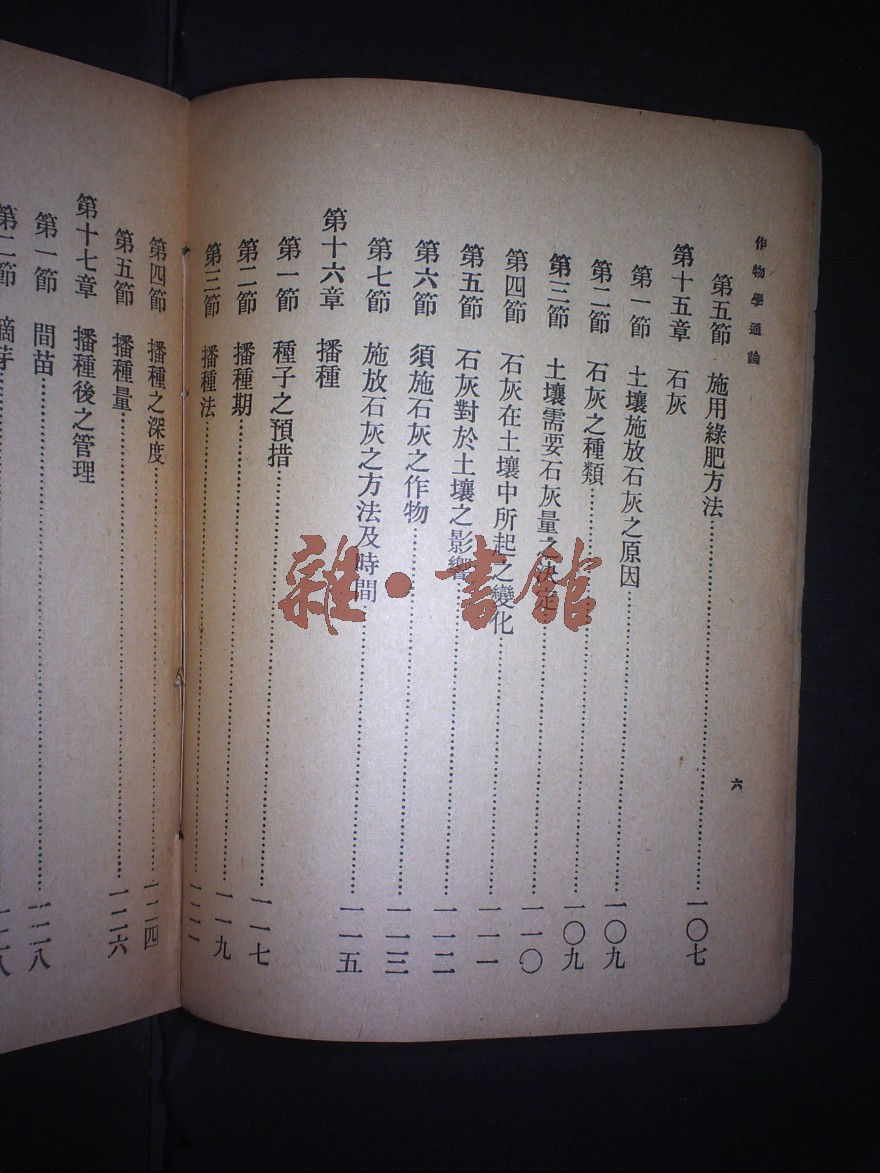 作物學通論
六
第五節 施用綠肥方法……一〇七
第十五章 石灰
第一節 土壤施放石灰之原因……一〇九
第二節 石灰之種類……一〇九
第三節 土壤需要石灰量之決定……一一〇
第四節 石灰在土壤中所起之變化……一一一
第五節 石灰對於土壤之影響……一一二
第六節 須施石灰之作物……一一三
第七節 施放石灰之方法及時間……一一五
第十六章 播種
第一節 種子之預措……一一七
第二節 播種期……一一九
第三節 播種法……一二一
第四節 播種之深度……一二四
第五節 播種量……一二六
第十七章 播種後之管理
第一節 間苗……一二八
第二節 摘芽……一二八
雜·書館